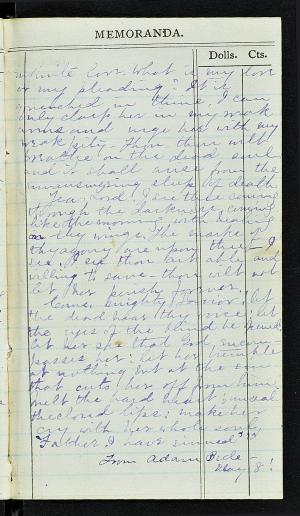 MEMORANDA.
Dolls. Cts.
infinite love. What is my love
or my pleading? It is
quenched in thine. I can
only clasp her in my weak
arms and urge her with my
weak pity. Thou thou wilt
breathe on the dead soul
and it shall arise from the
unanswering sleep of death
Yea, Lord, I see thee coming
through the darkness, coming
like the morning, with healing
on thy wings. The marks of
thy agony are upon thee - I
see, I see thou art able and
willing to save - thou wilt not
let her perish forever.
Come, mighty Savior; let
the dead hear thy voice; let
the eyes of the blind be opened;
let her see that God encom-
passes her; let her tremble
at nothing but at the sin
that cuts her off from him.
Melt the hard heart; unseal
the closed lips; make her
cry with her whole soul,
"Father, I have sinned"
From Adam Bede -
May 8!